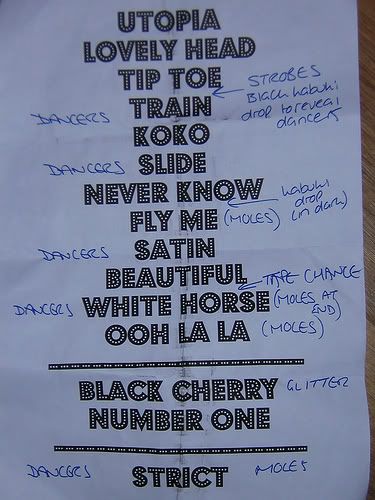 UTOPIA
LOVELY HEAD
TIP TOE
STROBES
Black kabuki
drop to reveal
dancers
DANCERS TRAIN
KOKO
DANCERS SLIDE
NEVER KNOW
kabuki
drop
(in dark)
FLY ME (MOLES)
DANCERS SATIN
BEAUTIFUL TAPE CHANGE
DANCERS WHITE HORSE (MOLES AT
END)
OOH LA LA (MOLES)
BLACK CHERRY GLITTER
NUMBER ONE
DANCERS STRICT MOLES